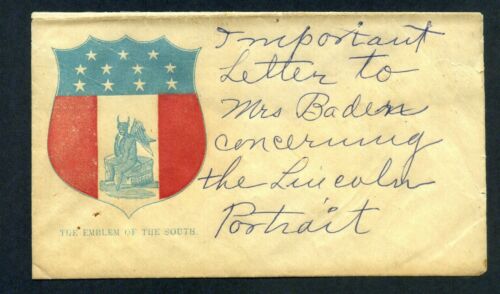 Important
Letter to
Mrs Baden
concerning
the Lincoln
Portrait
THE EMBLEM OF THE SOUTH.